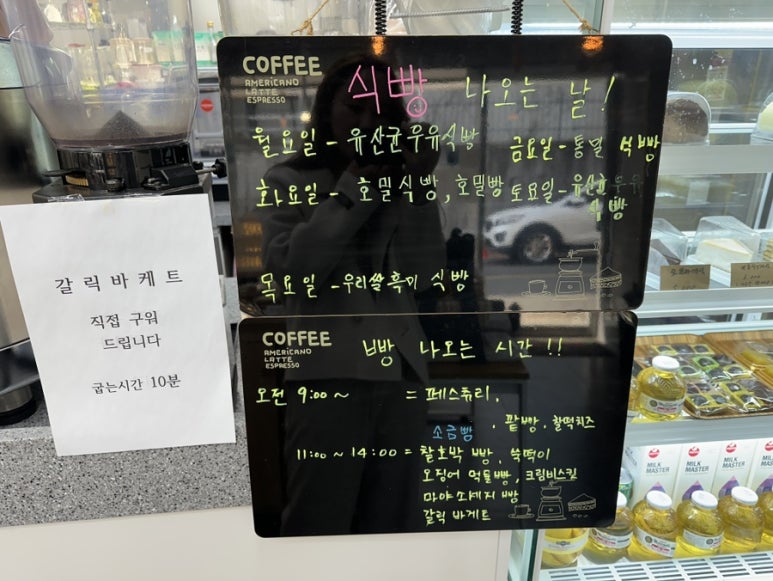 갈릭바케트
직접 구워
드립니다
굽는시간 10분
COFFEE
AMERICANO
LATTE
ESPRESSO
식빵 나오는 날!
월요일 - 유산균우유식빵
금요일 - 통밀 식빵
화요일 - 호밀식빵, 호밀빵
토요일 - 유산균우유
식빵
목요일 - 우리쌀흑미 식빵
COFFEE
AMERICANO
LATTE
ESPRESSO
빵 나오는 시간!!
오전 9:00 ~ = 페스츄리,
소금빵 · 팥빵 · 찰떡치즈
11:00 ~ 14:00 = 찰호박 빵, 쑥떡이
오징어 먹물빵, 크림비스킷
마야소세지 빵
갈릭 바게트
MILK
MASTER
MILK
MASTER
MILK
MASTER